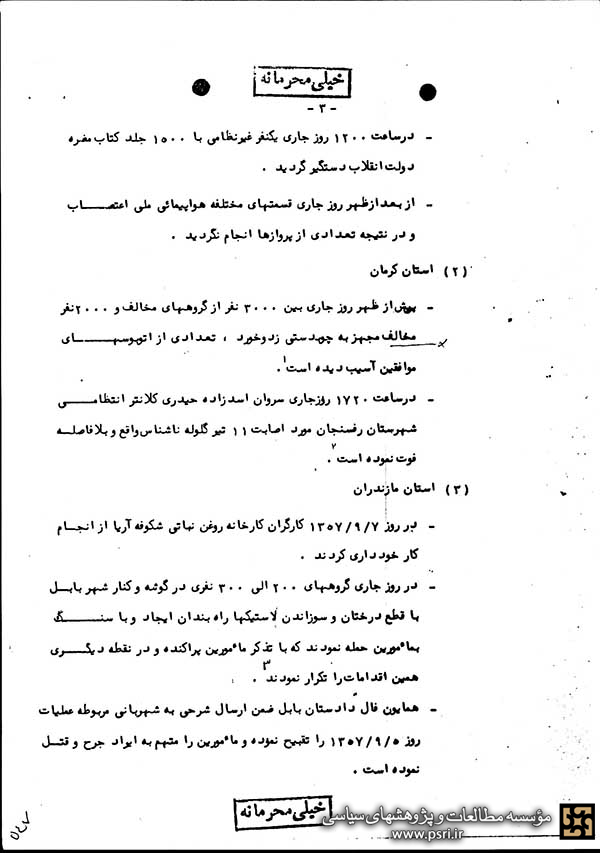 خیلی محرمانه
- ۳ -
- درساعت ۱۲۰۰ روز جاری یکنفر غیرنظامی با ۱۵۰۰ جلد کتاب مضره
دولت انقلاب دستگیر گردید .
- از بعدازظهر روز جاری قسمتهای مختلفه هواپیمائی ملی اعتصاب
و در نتیجه تعدادی از پروازها انجام نگردید .
(۲) استان کرمان
- پیش از ظهر روز جاری بین ۳۰۰۰ نفر از گروههای مخالف و ۲۰۰۰نفر
مخالف مجهز به چوبدستی زدوخورد ، تعدادی از اتوبوسهای
موافقین آسیب دیده است۱.
- درساعت ۱۷۲۰ روزجاری سروان اسدزاده حیدری کلانتر انتظامی
شهرستان رفسنجان مورد اصابت ۱۱ تیر گلوله ناشناس واقع و بلافاصله
فوت نموده است۲.
(۳) استان مازندران
- در روز ۱۳۵۷/۹/۷ کارگران کارخانه روغن نباتی شکوفه آریا از انجام
کار خودداری کردند .
- در روز جاری گروههای ۲۰۰ الی ۳۰۰ نفری در گوشه و کنار شهر بابل
با قطع درختان و سوزاندن لاستیکها راه بندان ایجاد و با سنگ
بمأمورین حمله نمودند که با تذکر مأمورین پراکنده و در نقطه دیگری
همین اقدامات را تکرار نمودند۳ .
- همایون فال دادستان بابل ضمن ارسال شرحی به شهربانی مربوطه عملیات
روز ۱۳۵۷/۹/۵ را تقبیح نموده و مأمورین را متهم به ایراد جرح و قتل
نموده است .
خیلی محرمانه
مؤسسه مطالعات و پژوهشهای سیاسی
www.psri.ir